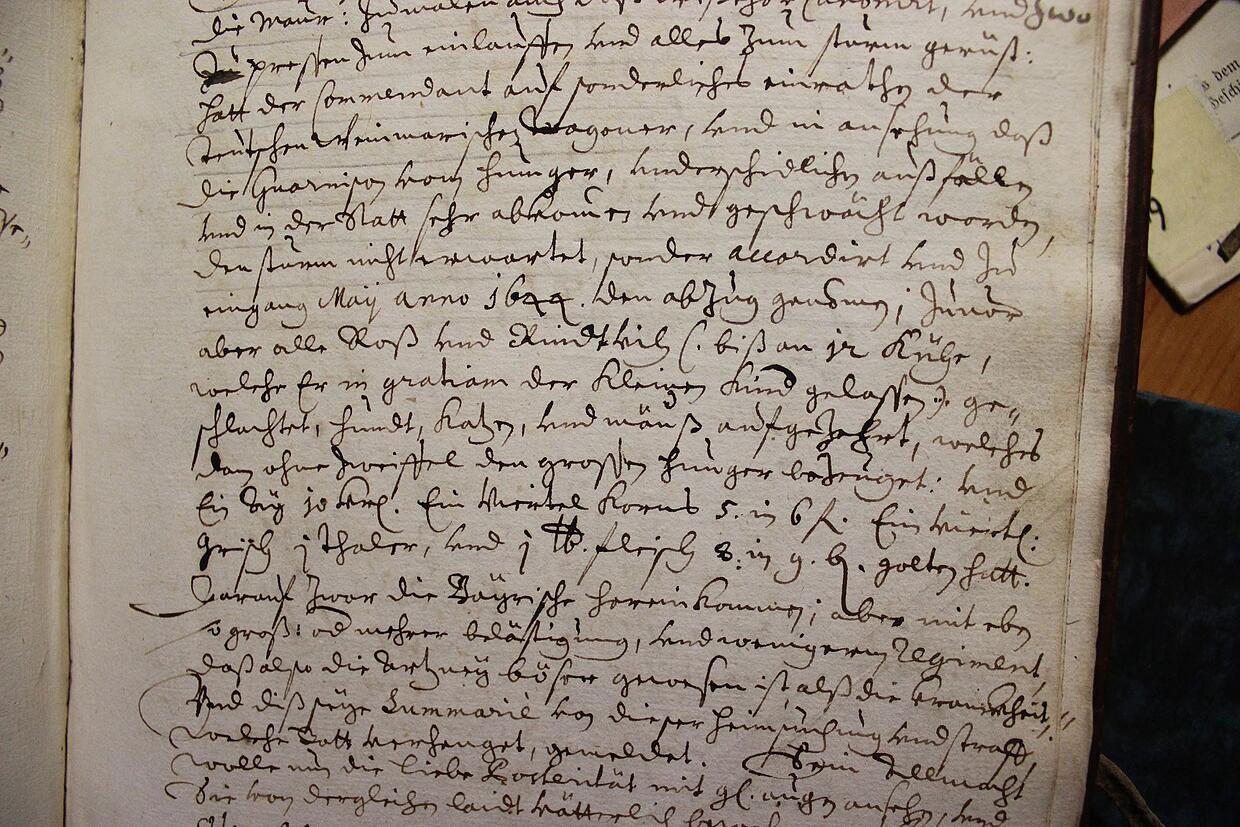 die Maur: zumalen auch
zu pressen zum einlauffen vnd alles zum sturm gerüst:
hatt der Commendant auf sonderliches einrathen der
teutschen Weinmarischen Tragoner, vnd in ansehung daß
die Guarnison vom hunger, vnderschidlichen außfällen
vnd in der Statt sehr abkomen vnd geschwächt worden,
den sturm nicht erwartet, sonder accordirt vnd zu
eingang Maij anno 1644. den abzug genomen; zuuor
aber alle Roß vnd Rindtvih (: biß an 12 Kühe,
welche Er in gratiam der kleinen kind gelassen :) ge„
schlachtet, hundt, katzen, vnd mäuß aufgezehrt, welches
dan ohne zweiffel den grossen hunger bezeuget: vnd
Ein Ay 10 Ein viertel Korns 5. in 6 f. Ein viertl:
Grisch 1 thaler, vnd 1 lb. fleisch 8. in 9. b. golten hatt.
Darauf zwar die Bäyrische hereinkommen; aber mit eben
so groß: od mehrer belästigung, vnd wenigerm Regiment,
daß also die artzney böser gewesen ist, alß die kranckheit,
Vnd diß seye Summariè von dieser heimsuchung vnd straff,
welche Gott verhenget, gemeldet. Sein Allmacht
wolle nun die liebe Posterität mit gl. augen ansehen, vnd
Sie von dergleichen laidt vätterlich
dem
Geschi